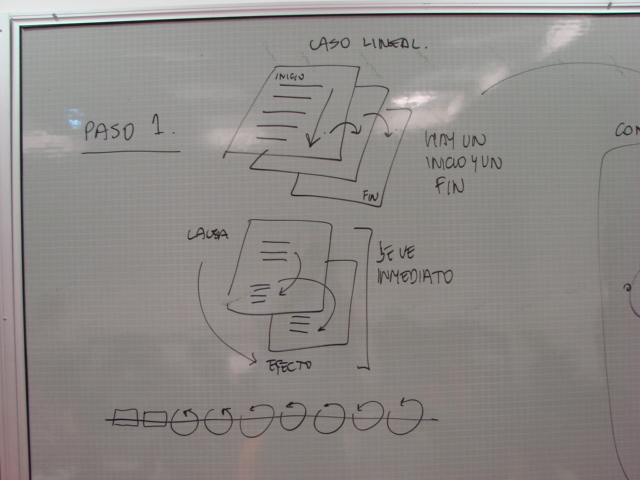 CASO LINEAL.
INICIO
PASO 1.
HAY UN
INICIO Y UN
FIN
FIN
CAUSA
SE VE
INMEDIATO
EFECTO
CON